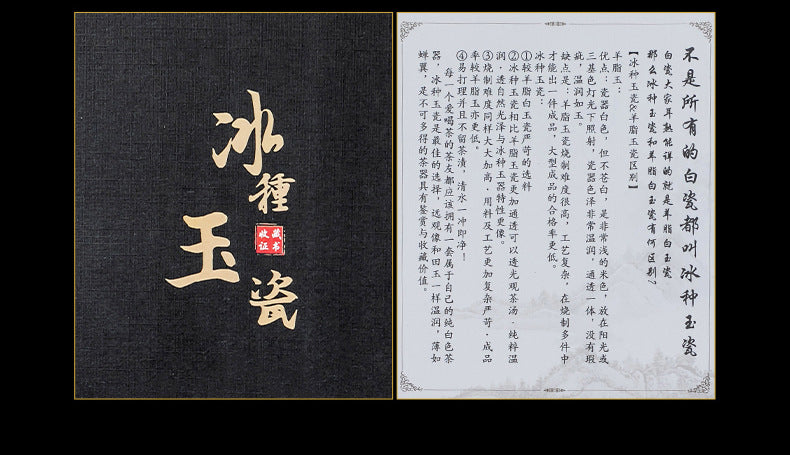 冰種
玉瓷
收藏
证书
不是所有的白瓷都叫冰种玉瓷
白瓷大家耳熟能详的就是羊脂白玉瓷
那么冰种玉瓷和羊脂白玉瓷有何区别?
【冰种玉瓷&羊脂玉瓷区别】
羊脂玉:
优点:瓷器白色,但不苍白,是非常浅的米色,放在阳光或
三基色灯光下照射,瓷器色泽非常温润,通透一体,没有瑕
疵,温润如玉。
缺点是:羊脂玉瓷烧制难度很高,工艺复杂,在烧制多件中
才能出一件成品,大型成品的合格率更低。
冰种玉瓷:
①较羊脂白玉瓷严苛的选料
②冰种玉瓷和比羊脂玉瓷更加通透可以透光观茶汤.纯粹温
润.透自然光泽与冰种玉器特性更像。
③烧制难度同样大大加高.用料及工艺更加复杂严苛.成品
率较羊脂玉亦更低。
④易打理并且不留茶渍,清水一冲即净!
每一个爱喝茶的茶友都应该拥有一套属于自己的纯白色茶
器,冰种玉瓷是最佳的选择,远观像和田玉一样温润,薄如
蝉翼,是不可多得的茶器具有鉴赏与收藏价值。